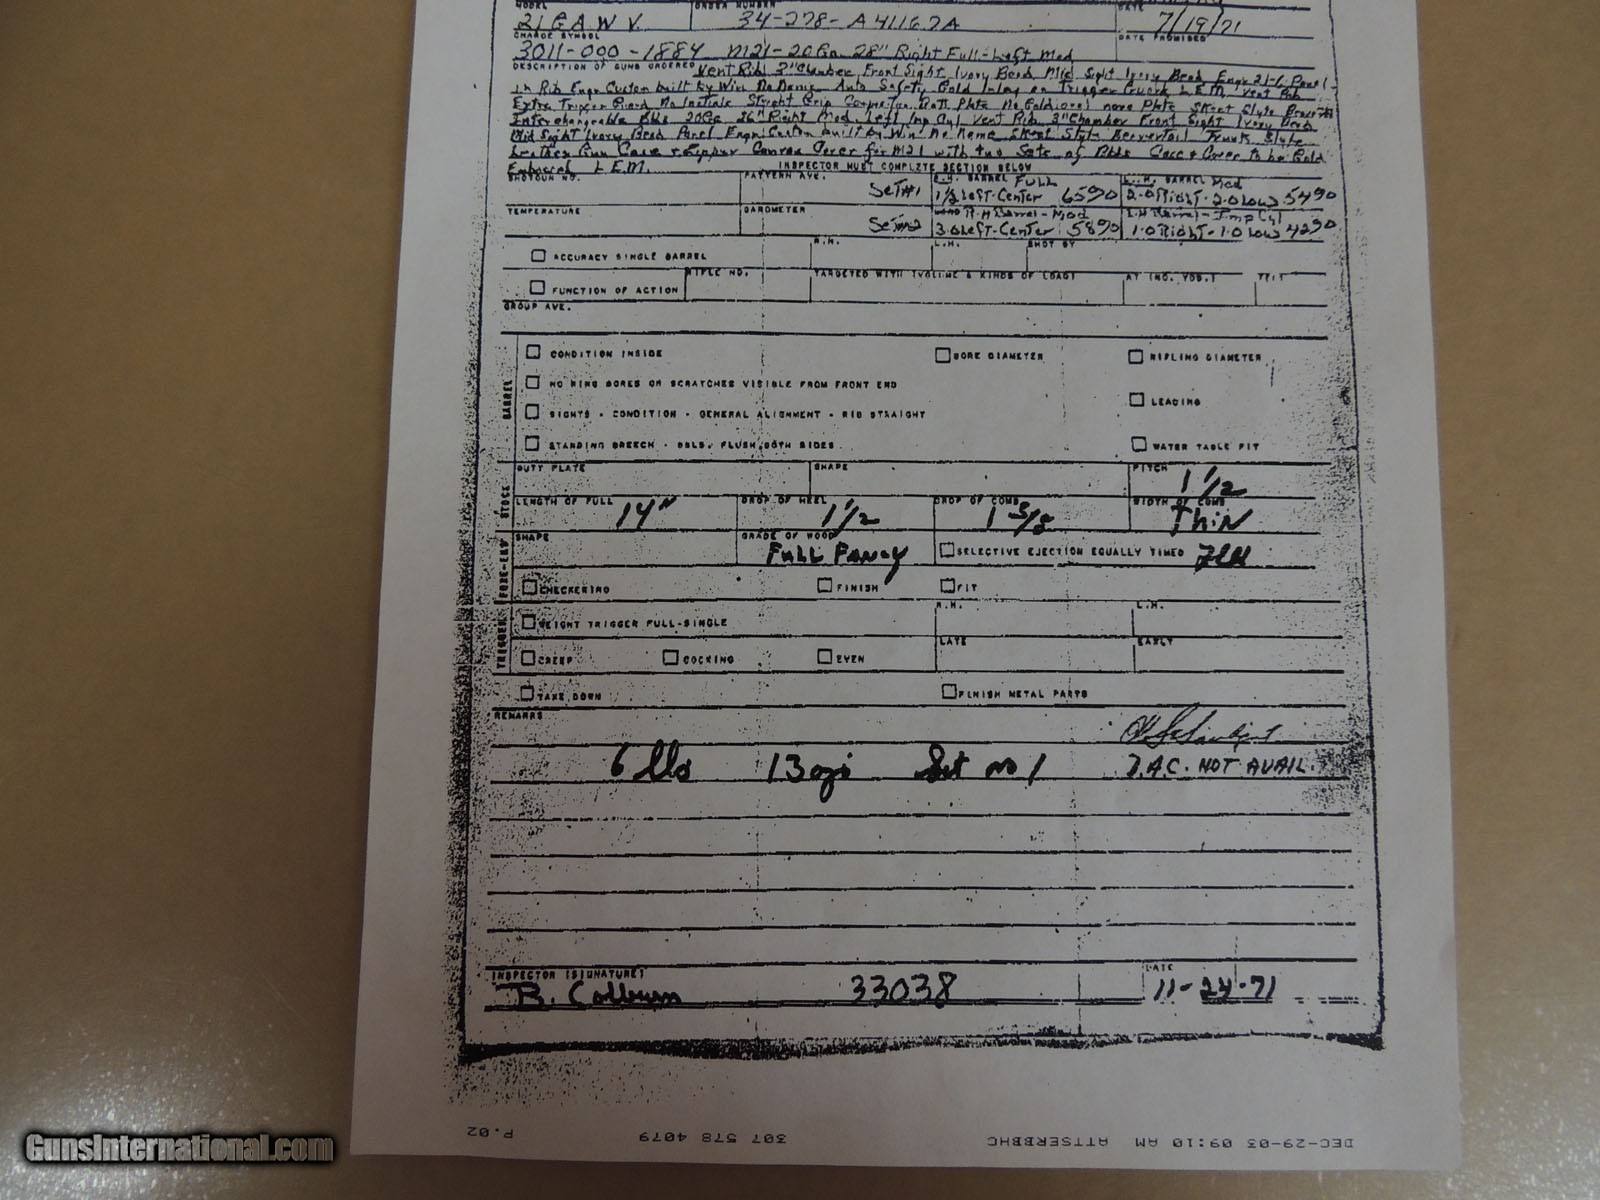 MODEL ORDER NUMBER DATE
21 G.A.W V. 34-278-A41167A 7/19/71
CHARGE SYMBOL DATE PROMISED
3011-000-1884 M21-20Ga 28" Right Full-Left Mod
DESCRIPTION OF GUNS ORDERED Vent Rib 3" Chamber Front Sight Ivory Bead Mid Sight Ivory Bead Engr. 21-6 Panel
in Rib Engr Custom built by Win No Name Auto Safety Gold Inlay on Trigger Guard L.E.M. Vent Rib
Extra Trigger Guard No Initials Straght Grip Butt Plate No Gold name Plate Skeet Style
Interchangeable Bbls 20Ga 26" Right Mod Left Imp Cyl Vent Rib 3" Chamber Front Sight Ivory Bead
Mid Sight Ivory Bead Panel Engr. Custom built by Win No Name Skeet Style Beevertail Trunk Style
Leather Gun Case & Zipper Canvas Cover for M21 with two Sets of Bbls Case & Cover to be Gold
Embosed L.E.M. INSPECTOR MUST COMPLETE SECTION BELOW
SHOTGUN NO. PATTERN AVE. Set#1 R.H. BARREL FULL L.H. BARREL Mod
1½ Left-Center 6590 2.0 Right-2.0 Low 5490
TEMPERATURE BAROMETER Set#2 R.H Barrel-Mod L.H Barrel-Imp Cyl
3.0 Left-Center 5890 1.0 Right-1.0 Low 4290
ACCURACY SINGLE BARREL R.H. L.H. SHOT BY
FUNCTION OF ACTION RIFLE NO. TARGETED WITH (VOLUME & KINDS OF LOAD) AT (NO. YDS.)
GROUP AVE.
BARREL
CONDITION INSIDE BORE DIAMETER RIFLING DIAMETER
NO RING BORES OR SCRATCHES VISIBLE FROM FRONT END
SIGHTS - CONDITION - GENERAL ALIGNMENT - RIB STRAIGHT LEADING
STANDING BREECH - BBLS. FLUSH BOTH SIDES WATER TABLE FIT
STOCK
BUTT PLATE SHAPE PITCH 1 1/2
LENGTH OF PULL 14" DROP OF HEEL 1 1/2 DROP OF COMB 1 3/8 WIDTH OF COMB Thin
FORE-END
SHAPE GRADE OF WOOD FULL FANCY SELECTIVE EJECTION EQUALLY TIMED
CHECKERING FINISH FIT
TRIGGER
WEIGHT TRIGGER PULL-SINGLE R.H. L.H.
CREEP COCKING EVEN LATE EARLY
TAKE DOWN FINISH METAL PARTS
REMARKS
6 lbs 13 ozs Set no 1 J.A.C. NOT AVAIL.
INSPECTOR (SIGNATURE) DATE
B. Colburn 33038 11-24-71
DEC-29-03 09:10 AM ATTSERBBHC 307 578 4079 P.02
GunsInternational.com